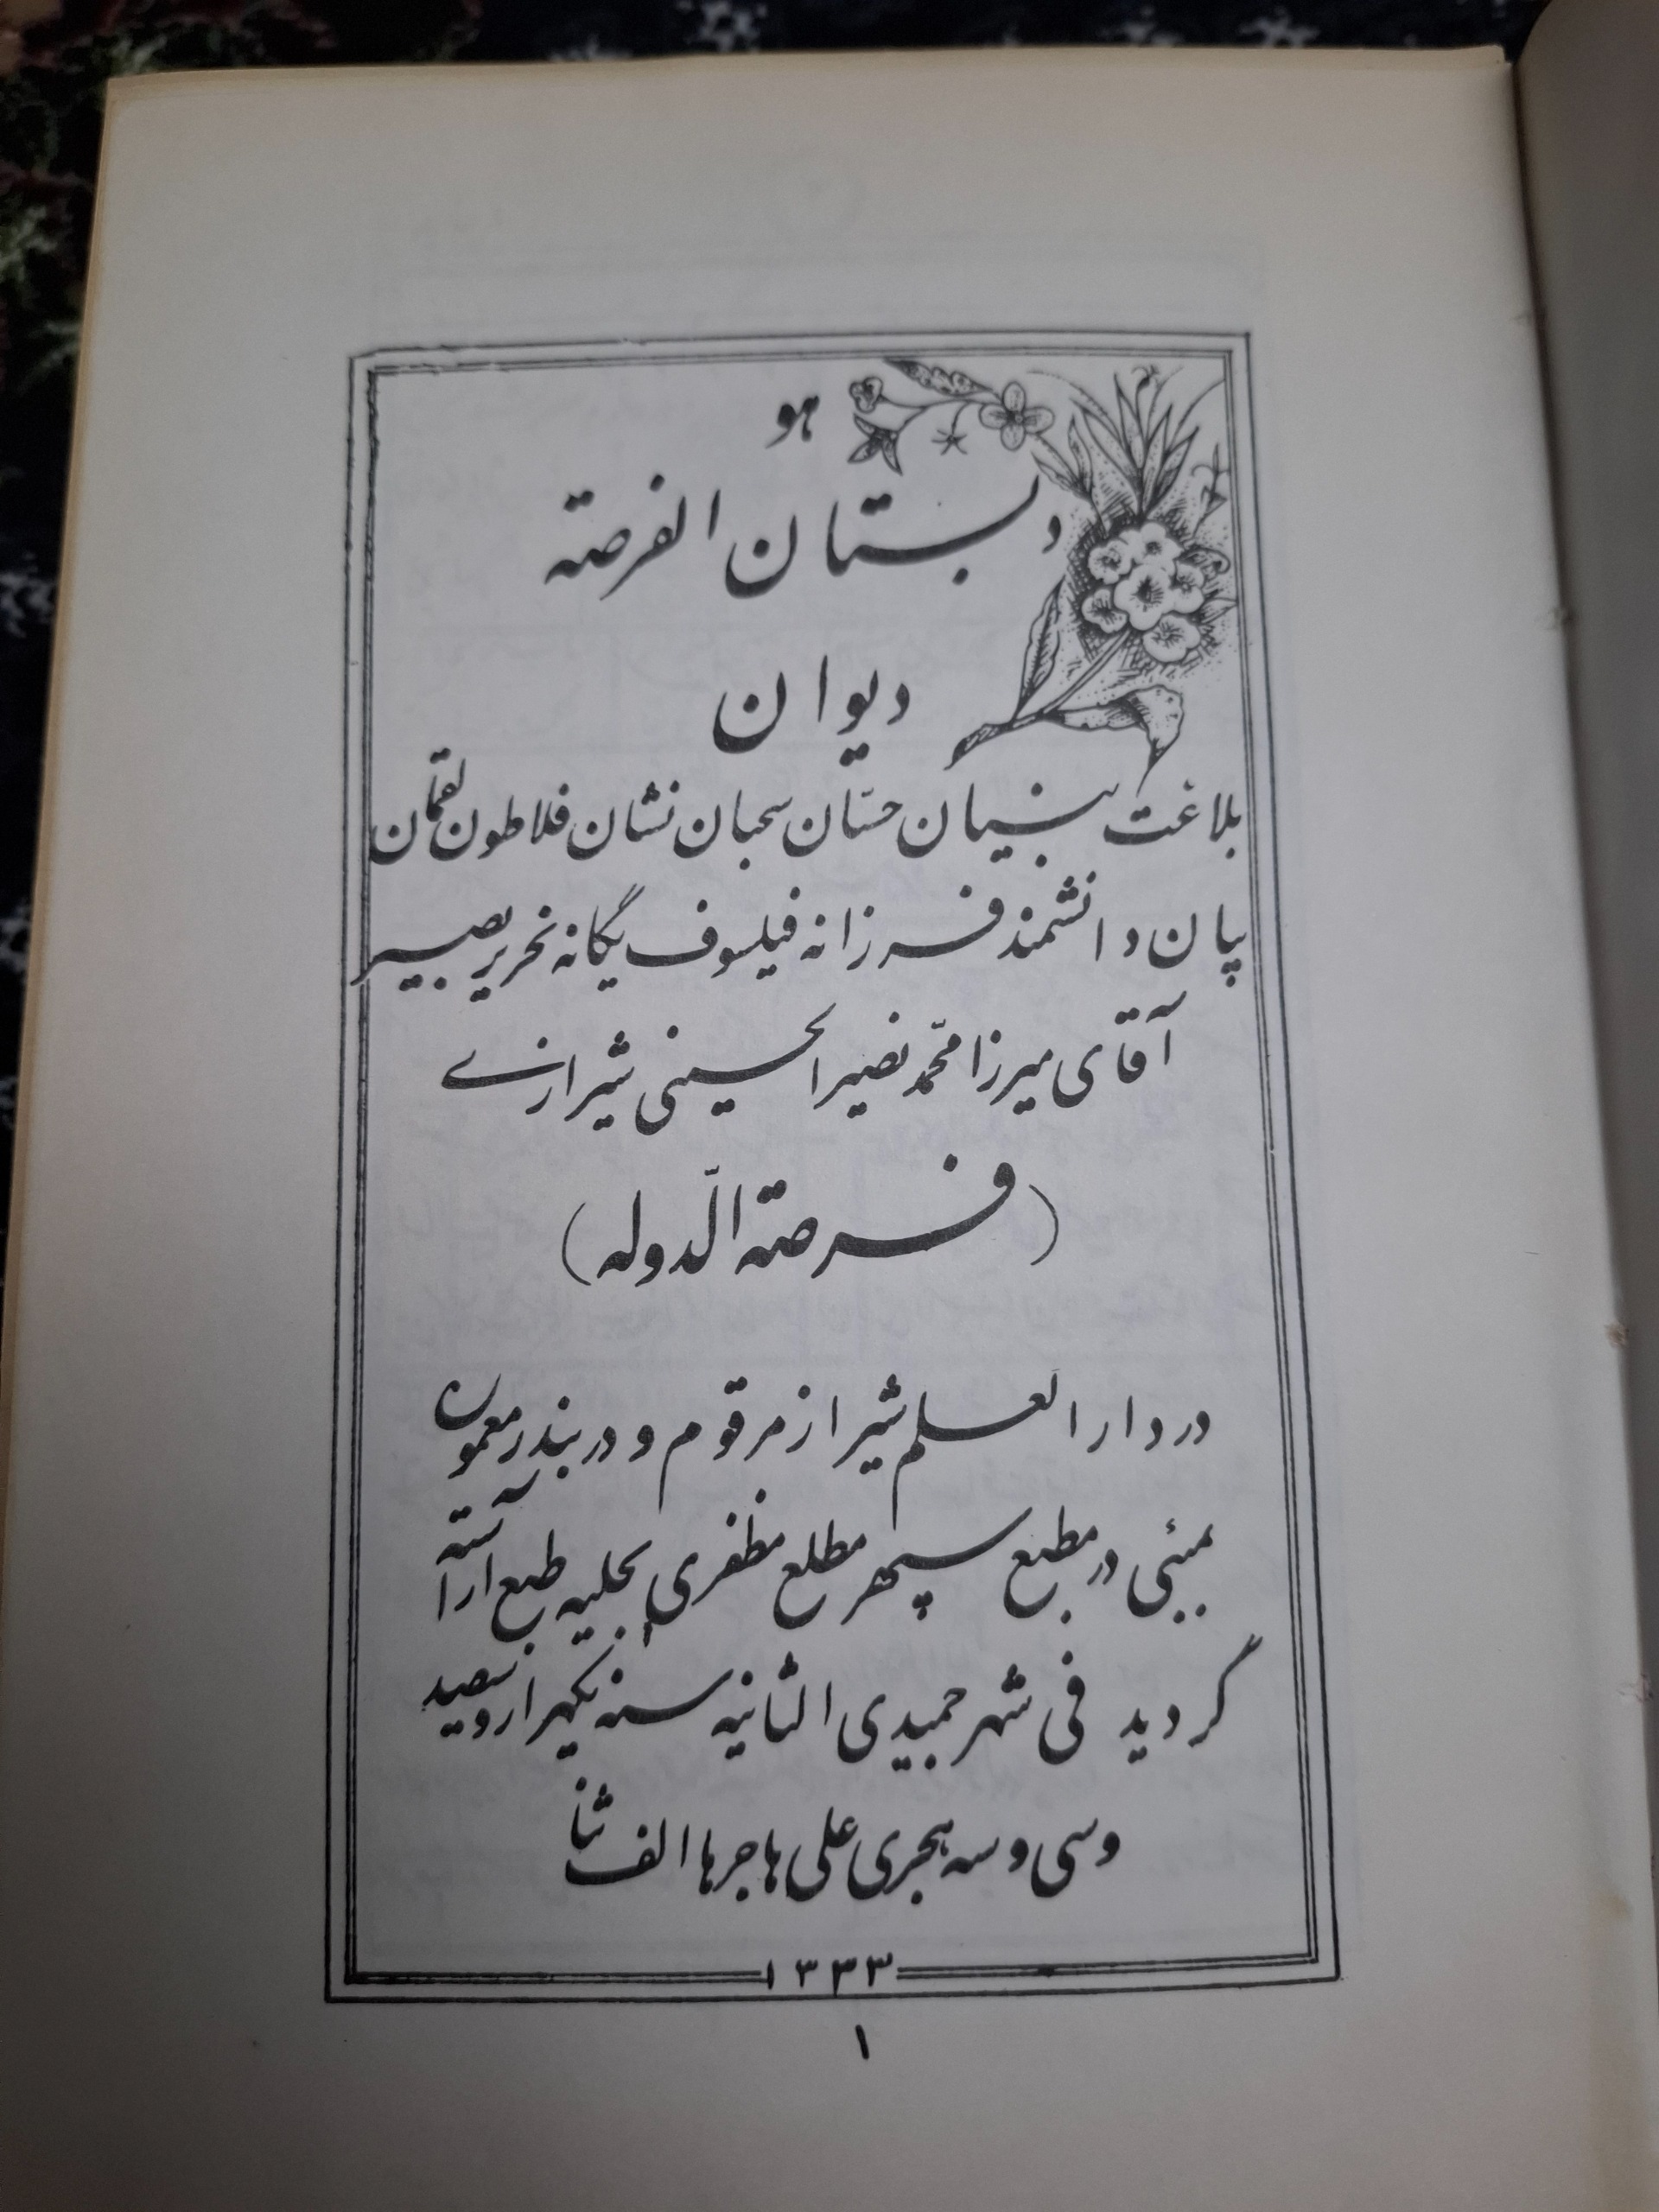 هو
دبستان الفرصته
دیوان
بلاغت بنیان حسّان سحبان نشان فلاطون لقمان
بیان دانشمند فرزانه فیلسوف یگانه نحریر بصیر
آقای میرزا محمّد نصیر الحسینی شیرازے
(فرصته الّدوله)
در دار العلم شیراز مرقوم و در بندر معموره
بمبئی در مطبع سپهر مطلع مظفری بحلیه طبع آراسته
گردید فی شهر جمیدی الثانیه سنه یکهزار و سیصد
و سی و سه هجری علی هاجرها الف ثنا
۱۳۳۳
۱